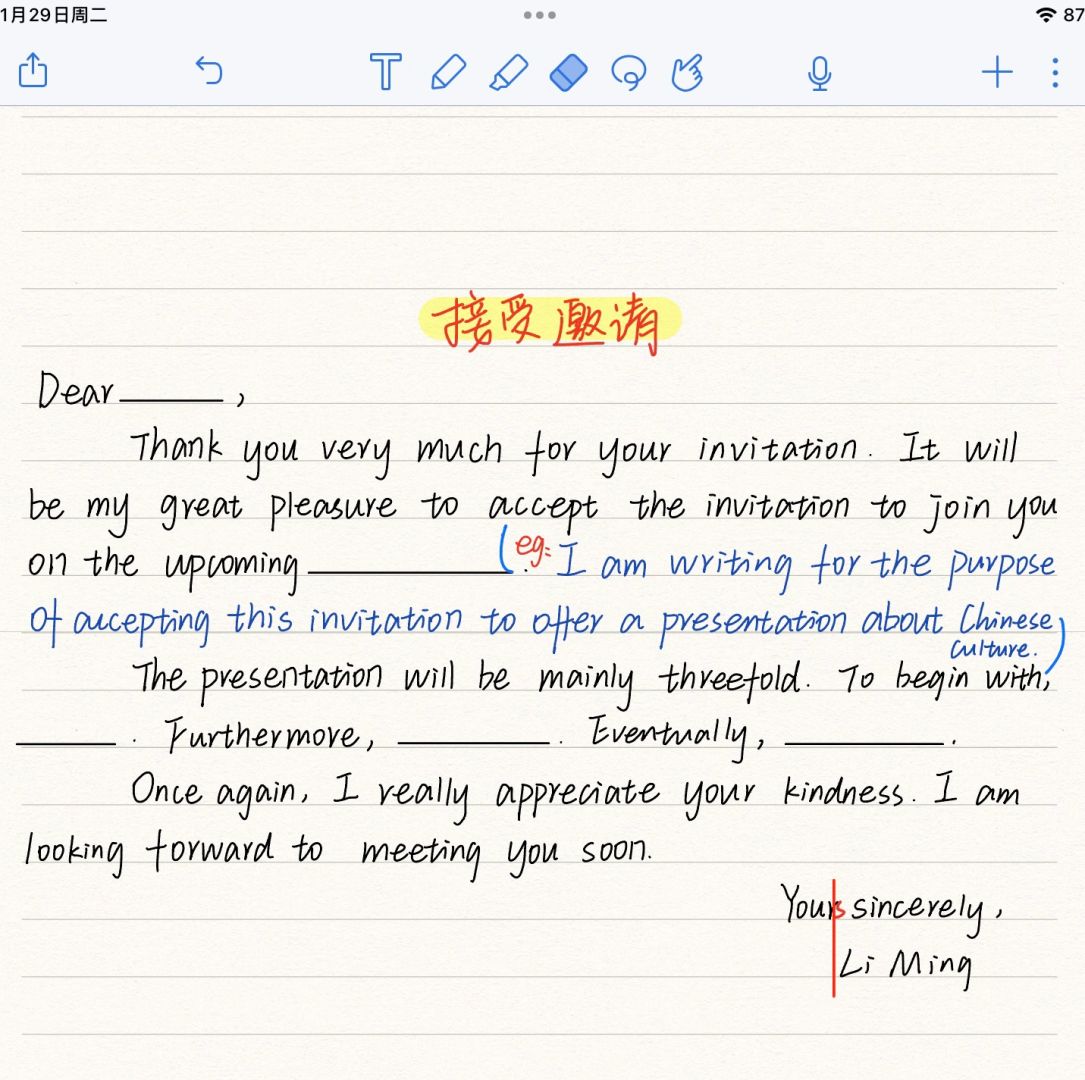 1月29日周二
87
T
接受邀请
Dear ______ ,
Thank you very much for your invitation. It will
be my great pleasure to accept the invitation to join you
on the upcoming ____________. (eg: I am writing for the purpose
of accepting this invitation to offer a presentation about Chinese
culture.)
The presentation will be mainly threefold. To begin with,
______ . Furthermore, _________ . Eventually, _________ .
Once again, I really appreciate your kindness. I am
looking forward to meeting you soon.
Yours sincerely,
Li Ming